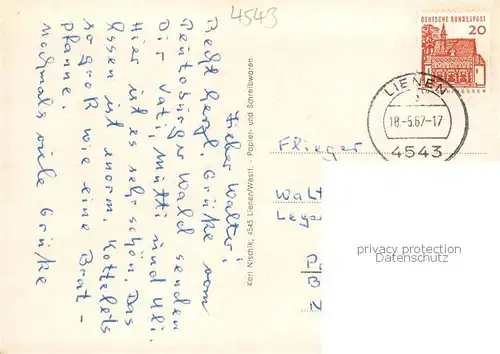 4543
DEUTSCHE BUNDESPOST
20
LIENEN
18-5.67-17
4543
Lieber Walter!
Recht herzl. Grüße vom
Teutoburger Wald senden
Dir Vati, Mutti und Uli.
Hier ist es sehr schön. Das
Essen ist enorm. Kotteletts
so groß wie eine Brat-
pfanne.
Nochmals viele Grüße
Karl Nischik, 4543 Lienen/Westf. · Papier- und Schreibwaren
Flieger
privacy protection
delcampe.net